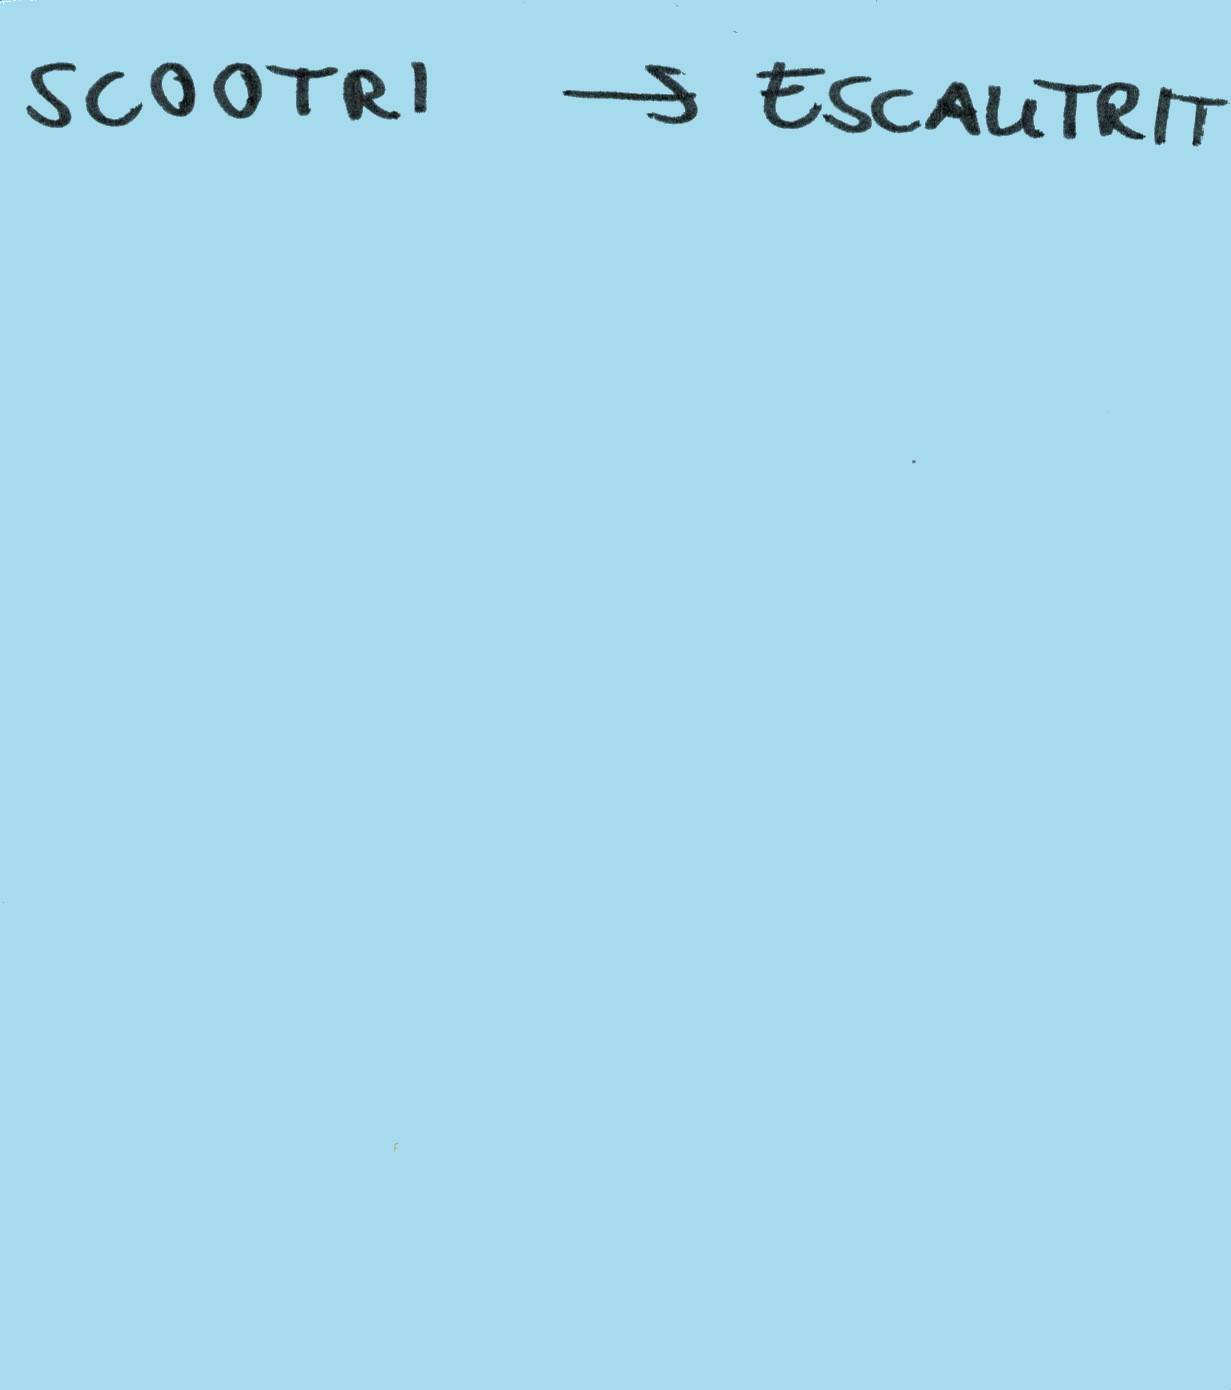 SCOOTRI → ESCAUTRIT